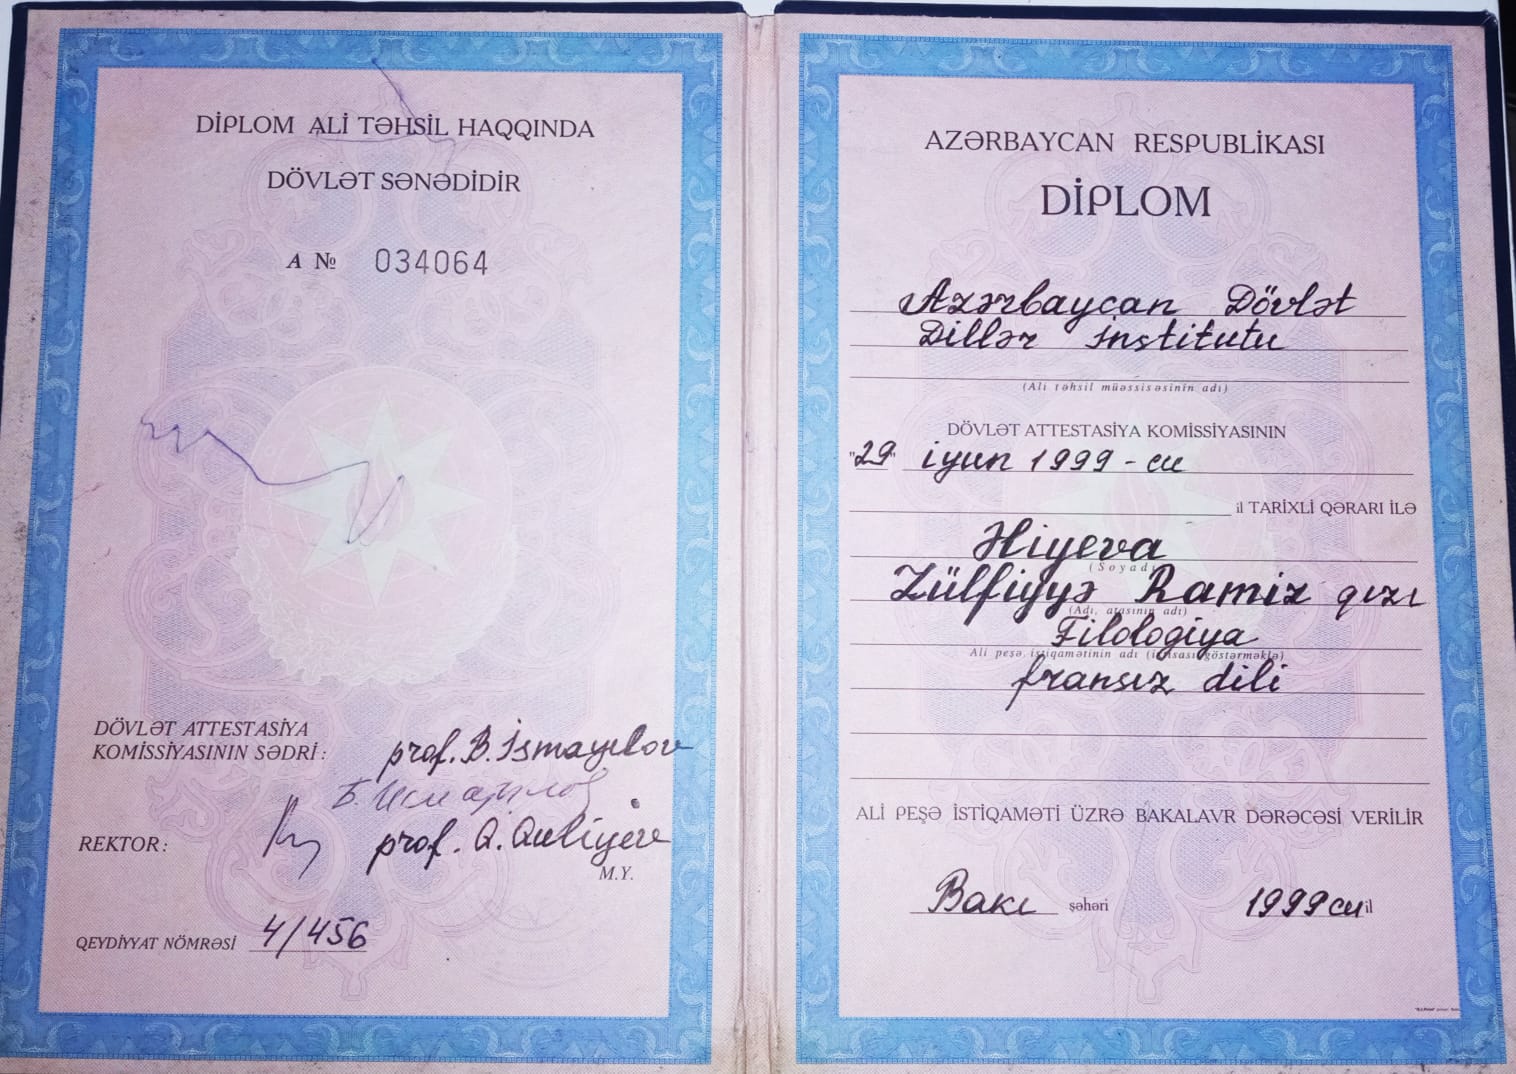 DİPLOM ALİ TƏHSİL HAQQINDA
DÖVLƏT SƏNƏDİDİR
A № 034064
DÖVLƏT ATTESTASİYA
KOMİSSİYASININ SƏDRİ: prof. B. İsmayılov
Б. Исмаилов
REKTOR: prof. Q. Quliyev
M.Y.
QEYDİYYAT NÖMRƏSİ 4/456
AZƏRBAYCAN RESPUBLİKASI
DİPLOM
Azərbaycan Dövlət
Dillər İnstitutu
(Ali təhsil müəssisəsinin adı)
DÖVLƏT ATTESTASİYA KOMİSSİYASININ
"29" iyun 1999-cu
il TARİXLİ QƏRARI İLƏ
Əliyeva
(Soyadı)
Zülfiyyə Ramiz qızı
(Adı, atasının adı)
Filologiya
Ali peşə istiqamətinin adı (ixtisası göstərməklə)
fransız dili
ALİ PEŞƏ İSTİQAMƏTİ ÜZRƏ BAKALAVR DƏRƏCƏSİ VERİLİR
Bakı şəhəri 1999cu il